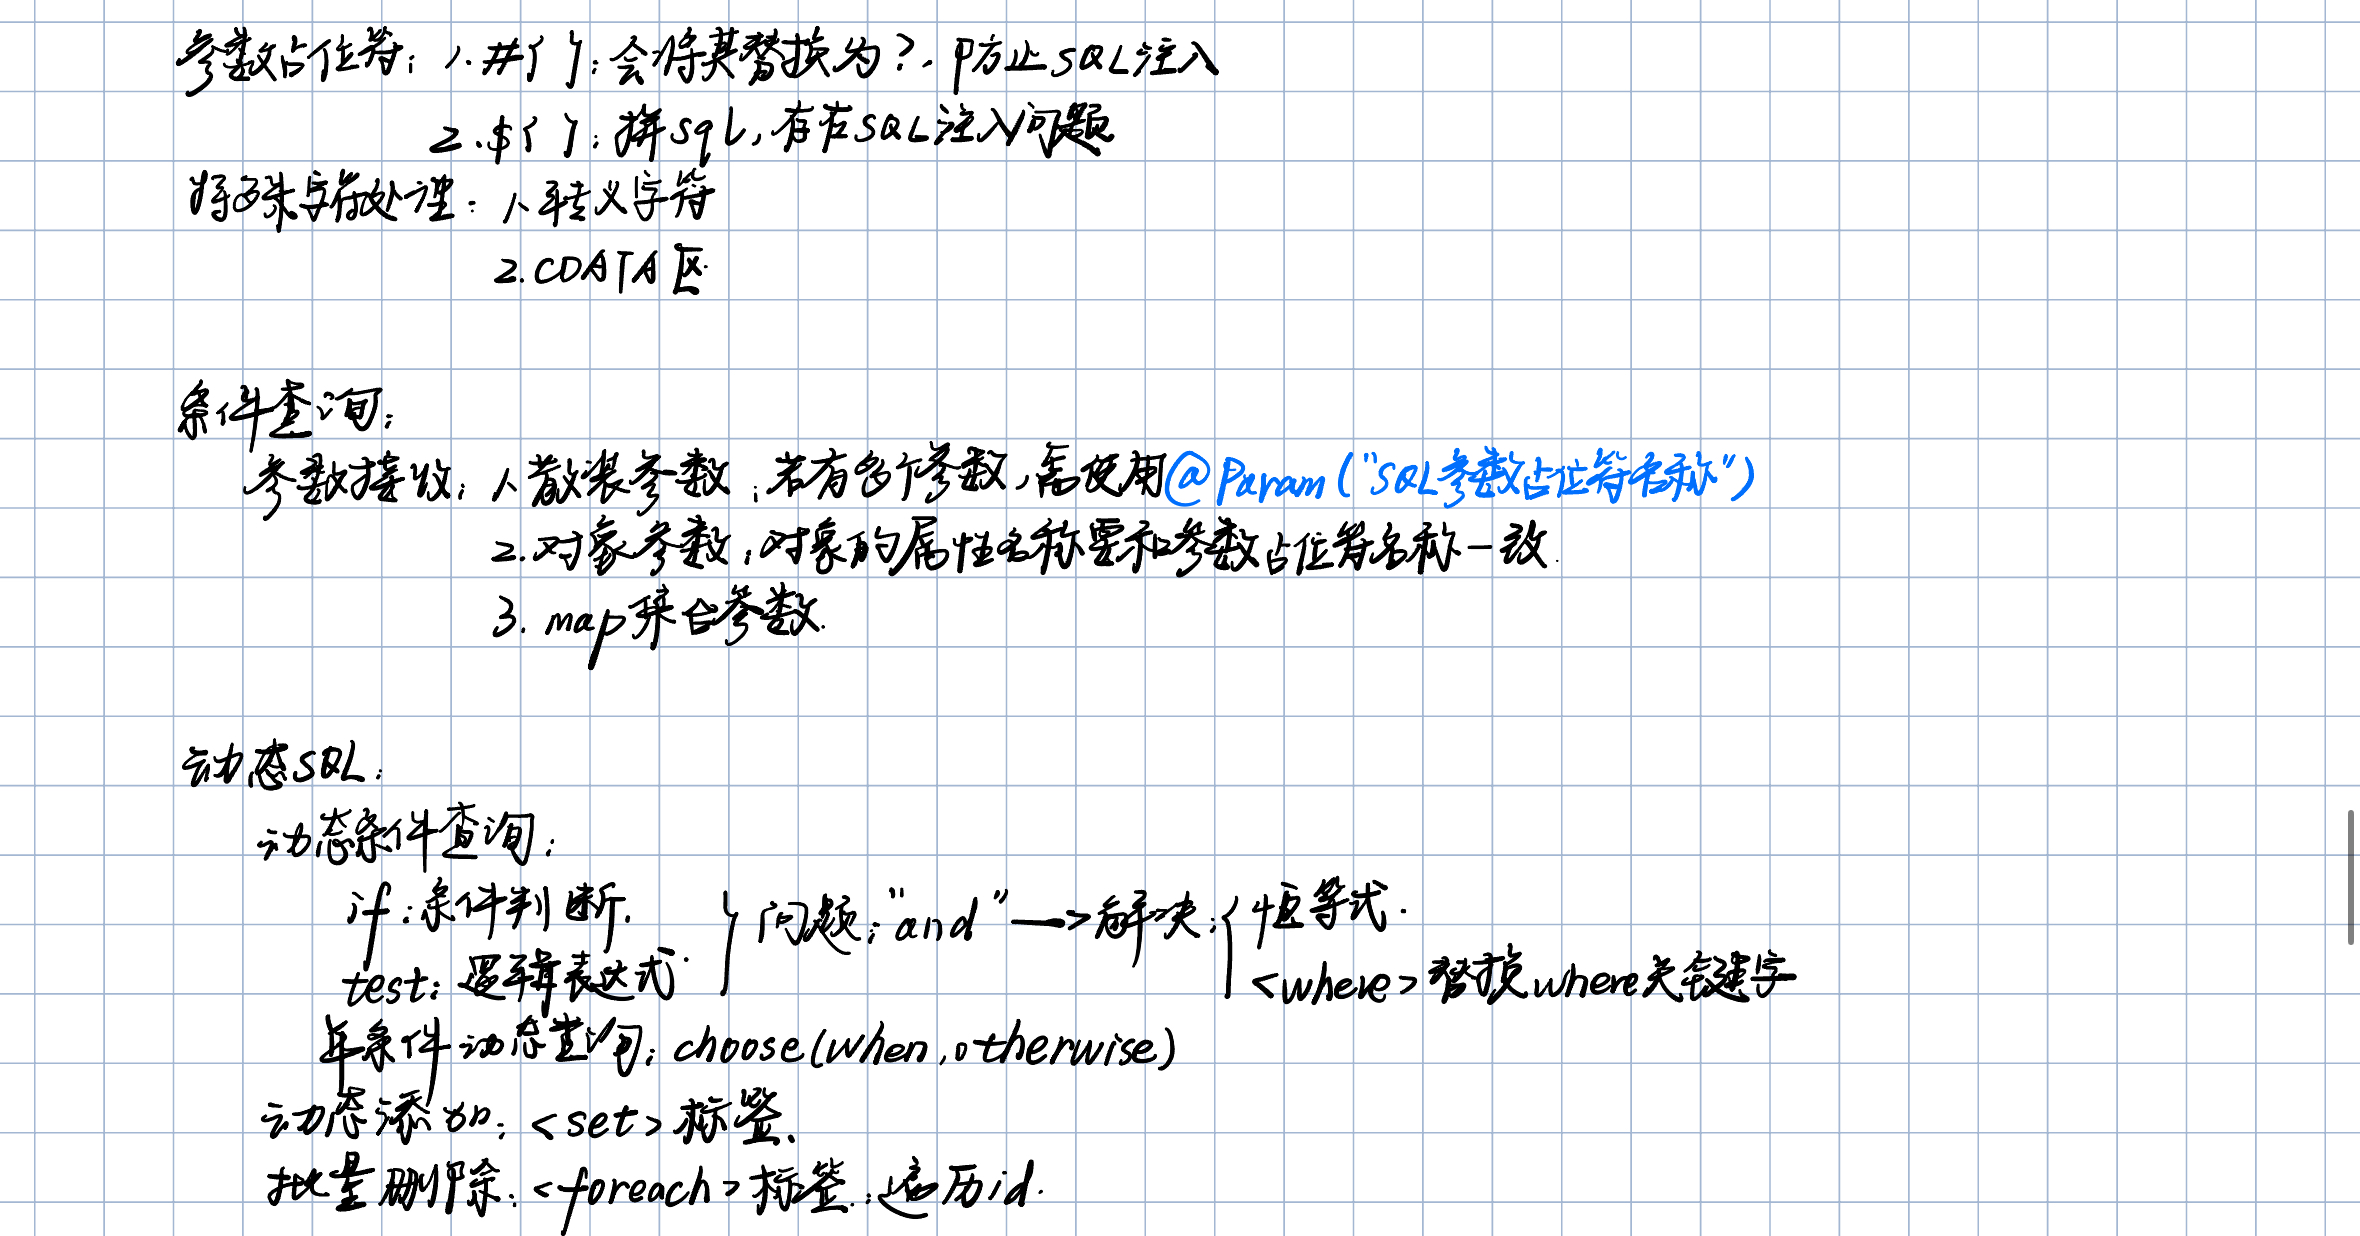 参数占位符：1.#{ }：会将其替换为？.防止SQL注入
2.${ }：拼sql，存在SQL注入问题
特殊字符处理：1.转义字符
2.CDATA区.
条件查询：
参数接收：1.散装参数：若有多个参数，需使用@Param("SQL参数占位符名称")
2.对象参数：对象的属性名称要和参数占位符名称一致.
3.map集合参数.
动态SQL：
动态条件查询：
if：条件判断. 问题："and"—>解决：{恒等式.
test：逻辑表达式. <where>替换where关键字
单条件动态查询：choose(when,otherwise)
动态添加：<set>标签.
批量删除：<foreach>标签：遍历id.